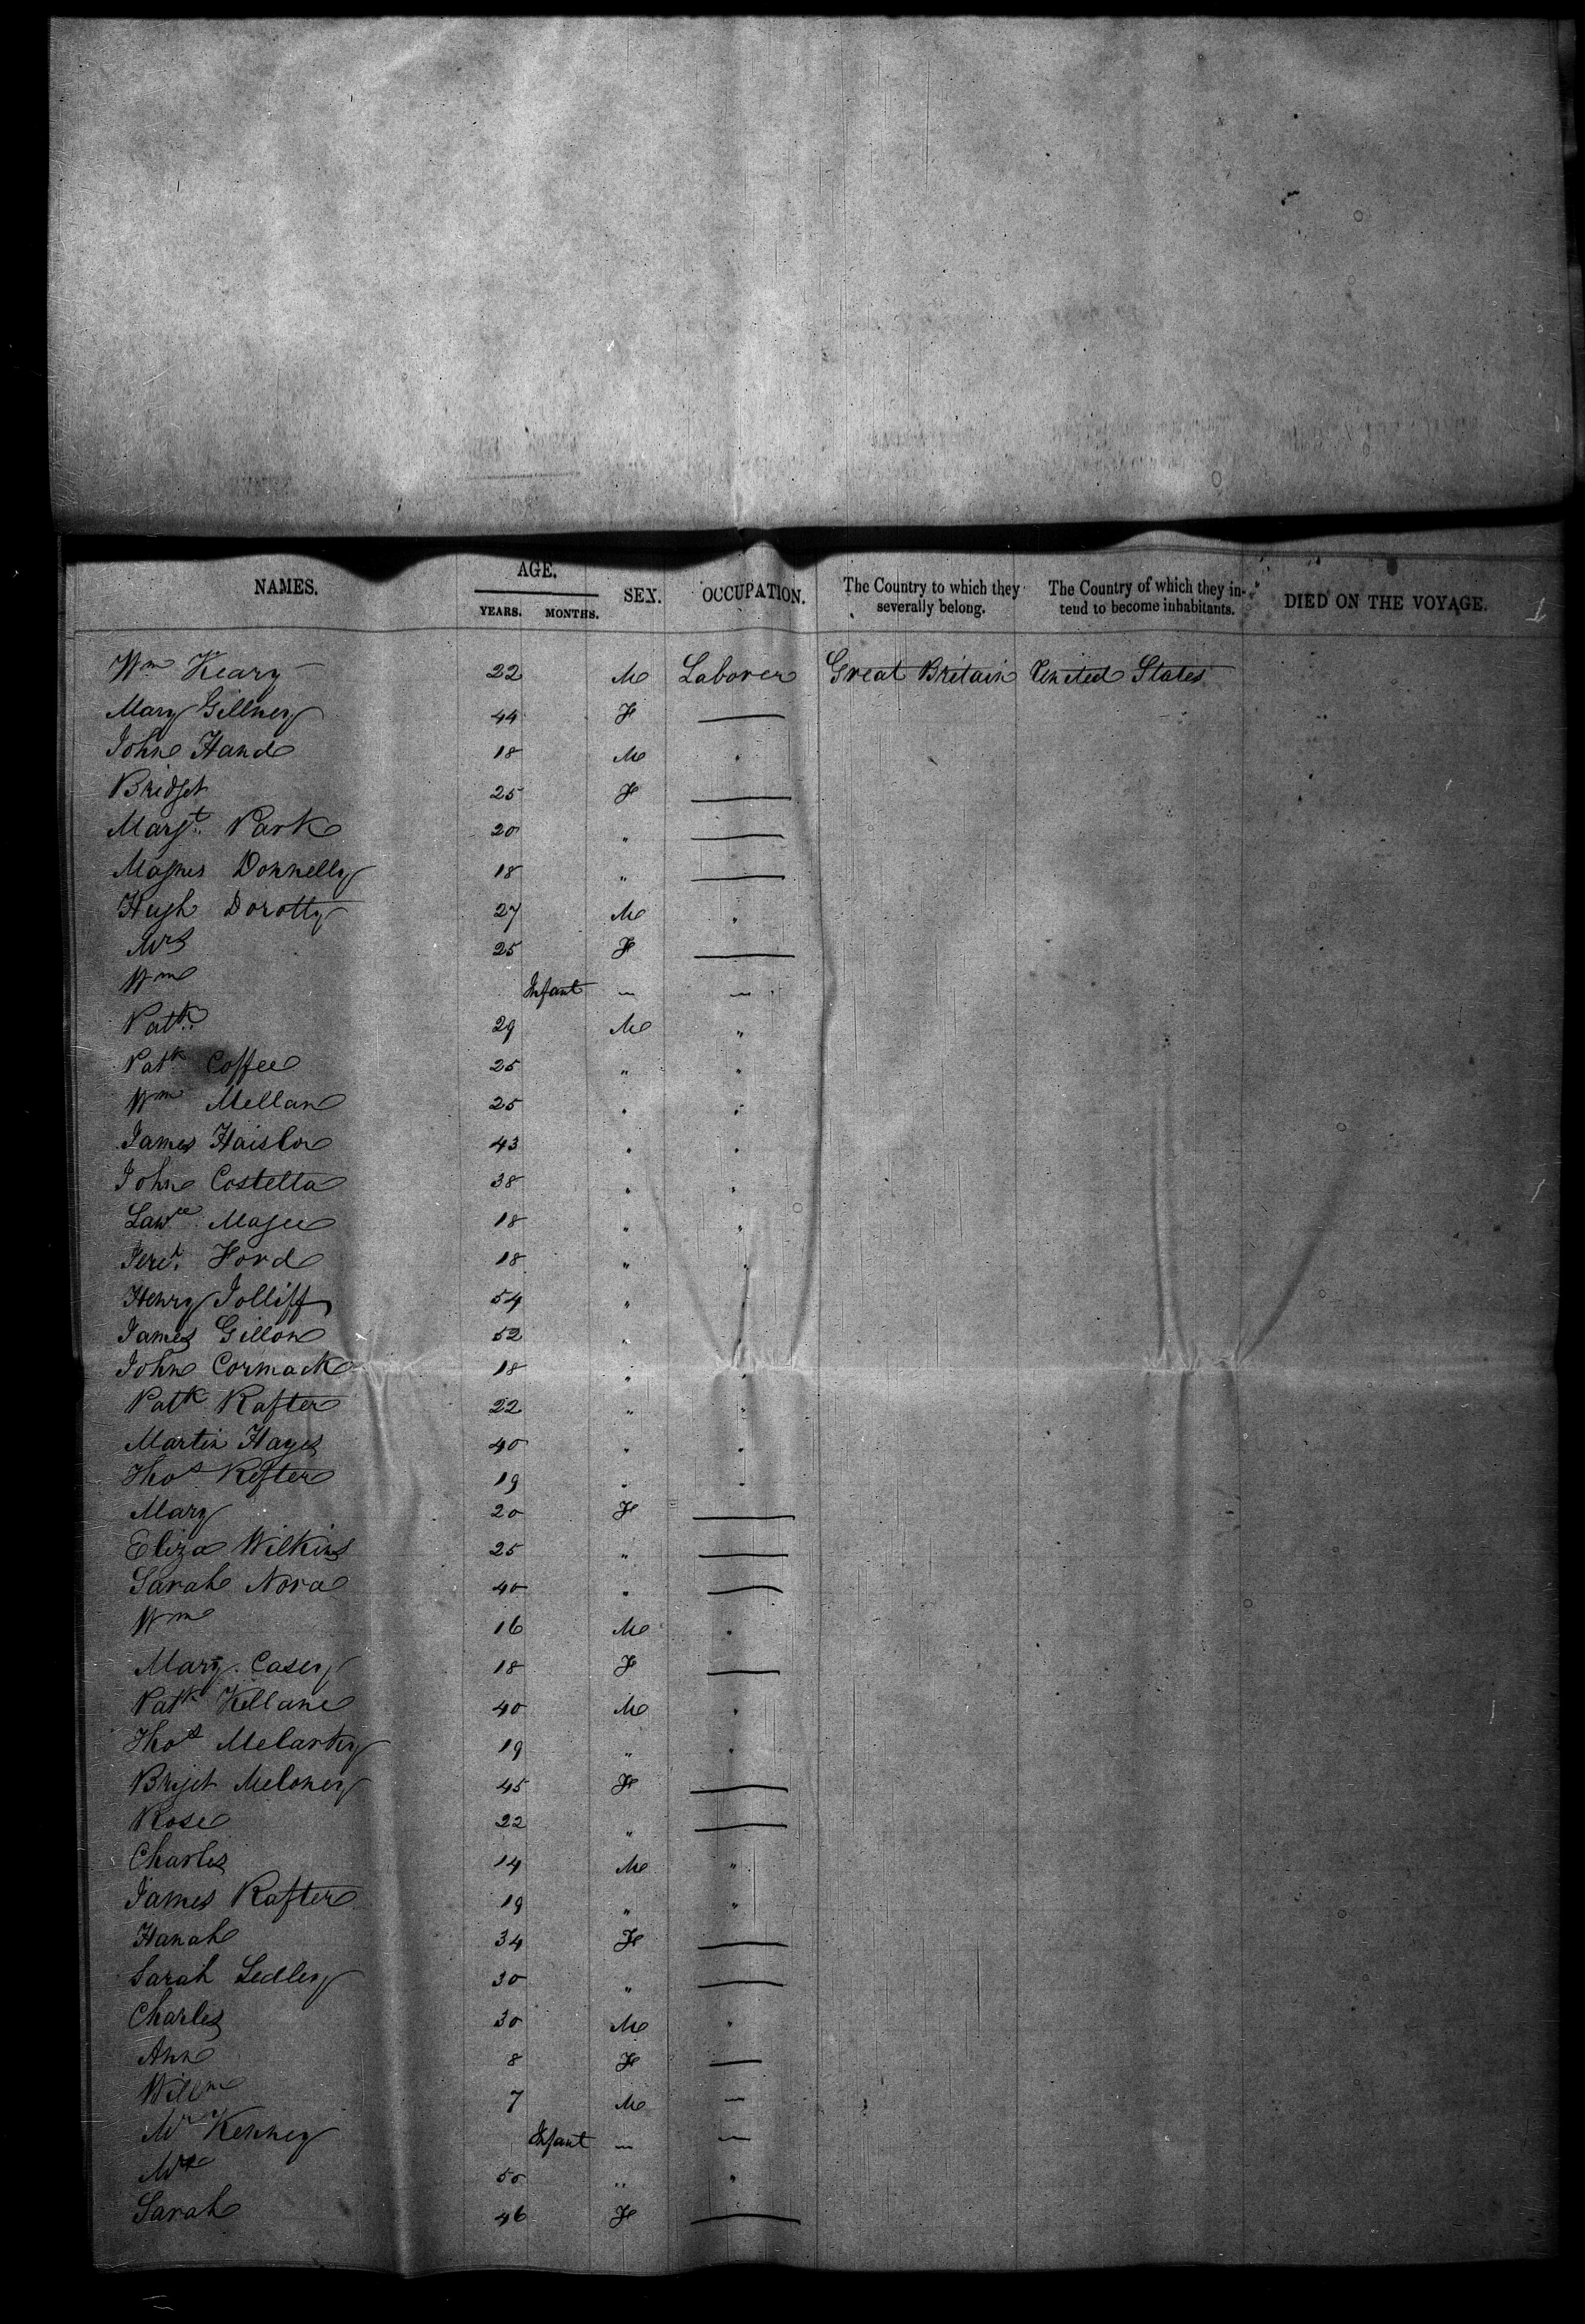 NAMES. AGE. YEARS. MONTHS. SEX. OCCUPATION. The Country to which they severally belong. The Country of which they intend to become inhabitants. DIED ON THE VOYAGE.
Wm Keary 22 M Laborer Great Britain United States
Mary Gillney 44 F —
John Hand 18 M "
Bridget 25 F —
Margt. Park 20 " —
Magnes Donnelly 18 " —
Hugh Dorotty 27 M "
Mrs 25 F —
Wm Infant — —
Patk. 29 M "
Patk. Coffee 25 " "
Wm Mellan 25 " "
James 43 " "
John Costella 38 " "
Lawce. Magee 18 " "
Ford 18 " "
Henry Jolliff 54 " "
James Gillon 52 " "
John Cormack 18 " "
Patk Rafter 22 " "
Martin Hayes 40 " "
Thos Refter 19 " "
Mary 20 F —
Eliza Wilkins 25 " —
Sarah Nora 40 " —
Wm 16 M "
Mary Casey 18 F —
Patk Killane 40 M "
Thos 19 " "
Meloney 45 F —
Rose 22 " —
Charles 14 M "
James Rafter 19 " "
Hanah 34 F —
Sarah Sedley 30 " —
Charles 30 M "
Ann 8 F —
Willm 7 M —
Mr Kenney Infant — —
50 " "
Sarah 46 F —